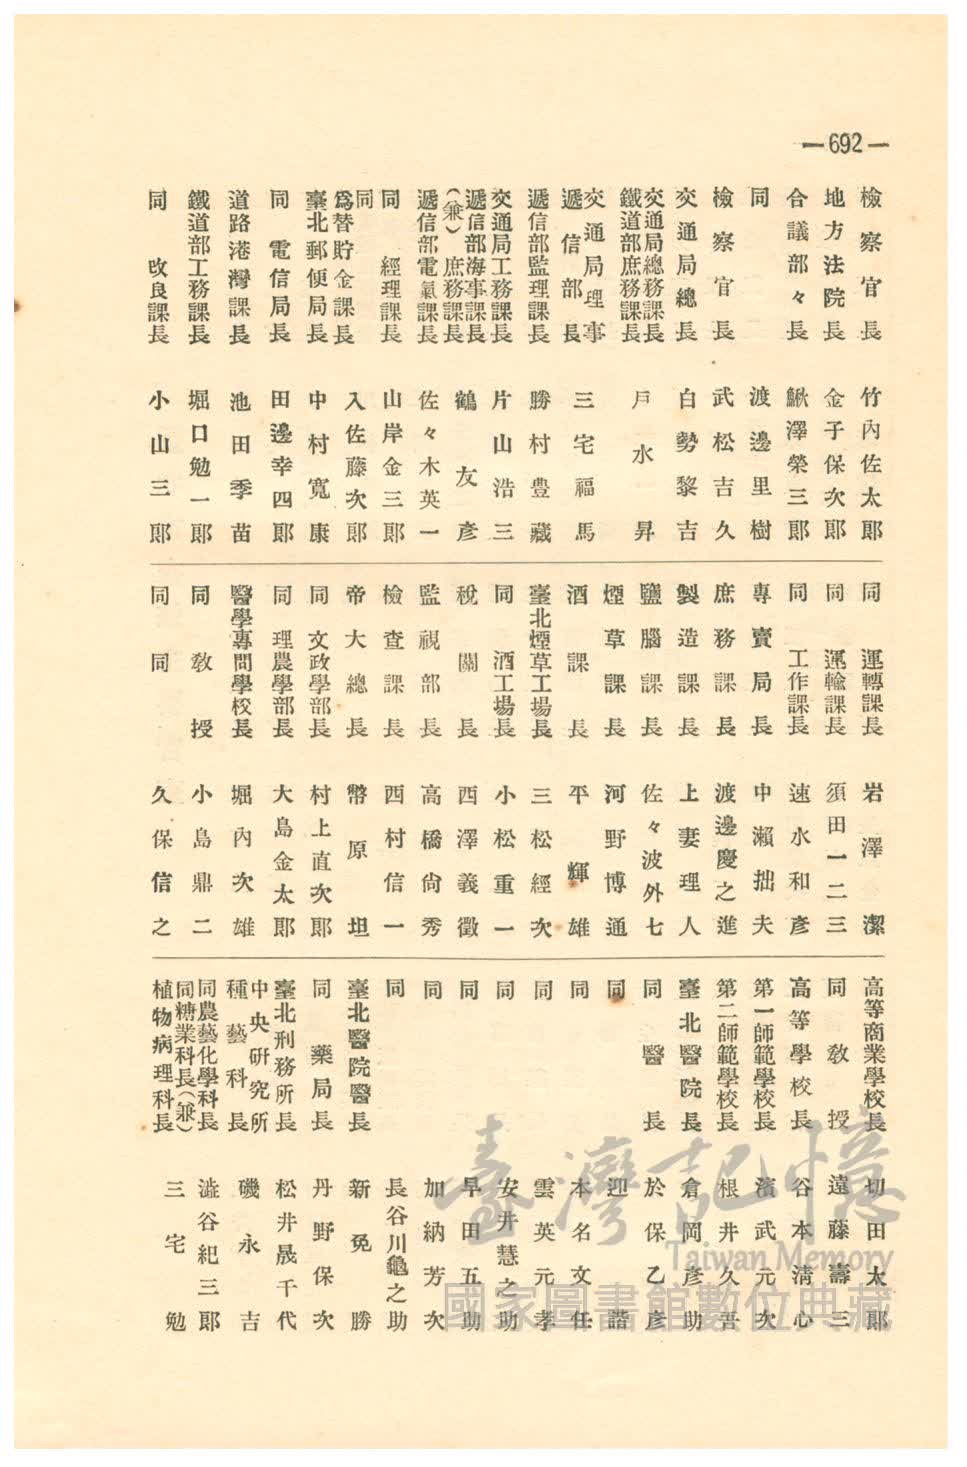 —692—
檢察官長 竹內佐太郎
地方法院長 金子保次郎
合議部々長 鰍澤榮三郎
同 渡邊里樹
檢察官長 武松吉久
交通局總長 白勢黎吉
交通局總務課長
鐵道部庶務課長 戸水昇
交通局理事
遞信部長 三宅福馬
遞信部監理課長 勝村豊藏
交通局工務課長 片山浩三
遞信部海事課長
(兼)庶務課長 鶴友彥
遞信部電氣課長 佐々木英一
同 經理課長 山岸金三郎
同
爲替貯金課長 入佐藤次郎
臺北郵便局長 中村寬康
同 電信局長 田邊幸四郎
道路港灣課長 池田季苗
鐵道部工務課長 堀口勉一郎
同 改良課長 小山三郎
同 運轉課長 岩澤潔
同 運輸課長 須田一二三
同 工作課長 速水和彥
專賣局長 中瀨拙夫
庶務課長 渡邊慶之進
製造課長 上妻理人
鹽腦課長 佐々波外七
煙草課長 河野博通
酒課長 平輝雄
臺北煙草工場長 三松經次
同 酒工場長 小松重一
稅關長 西澤義徵
監視部長 高橋尙秀
檢查課長 西村信一
帝大總長 幣原坦
同 文政學部長 村上直次郎
同 理農學部長 大島金太郎
醫學專門學校長 堀內次雄
同 敎授 小島鼎二
同 同 久保信之
高等商業學校長 切田太郎
同 敎授 遠藤壽三
高等學校長 谷本淸心
第一師範學校長 濱武元次
第二師範學校長 根井久吾
臺北醫院長 倉岡彥助
同 醫長 於保乙彥
同 迎諧
同 本名文任
同 雲英元孝
同 安井慧之助
同 早田五助
同 加納芳次
同 長谷川龜之助
臺北醫院醫長 新免勝
同 藥局長 丹野保次
臺北刑務所長 松井晟千代
中央硏究所
種藝科長 磯永吉
同農藝化學科長
同糖業科長(兼) 澁谷紀三郎
植物病理科長 三宅勉
臺灣記憶
Taiwan Memory
國家圖書館數位典藏